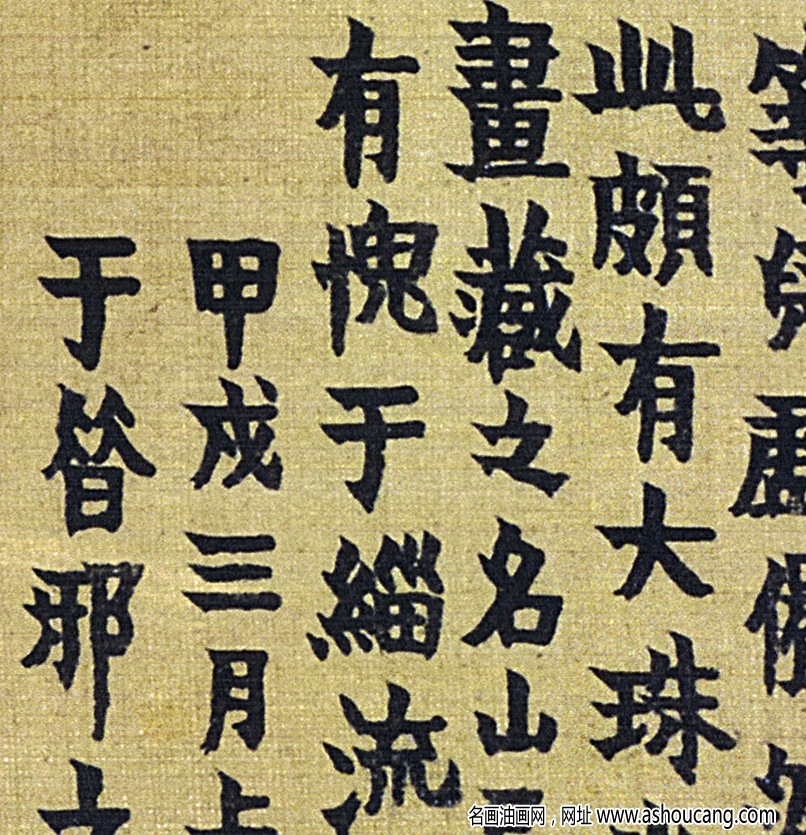 此頗有大珠
畫藏之名山
有愧于緇流
甲戌三月
于晉邪
名画油画网，网址 www.ashoucang.com